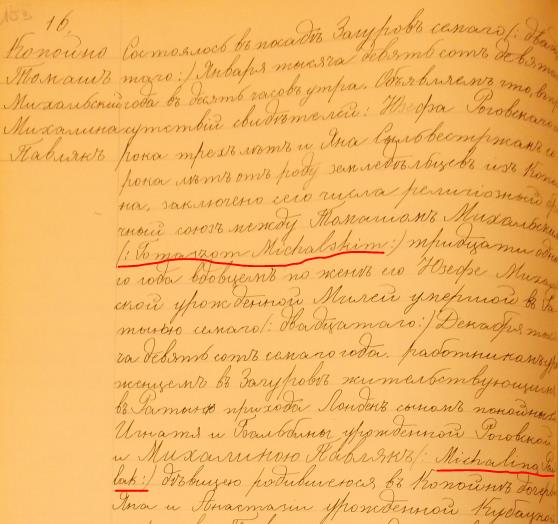 153
16
Копойно
Томашъ
Михальскій
Михалина
Павлякъ
Состоялось въ посадѣ Загуровъ семаго /: двад
таго :/ Января тысяча девять сотъ девята
года въ десять часовъ утра. Объявляемъ что, въ
сутствіи свидѣтелей: Юзефа Роговскаго
рока трехъ лѣтъ и Яна Сыльвестржакъ с
рока лѣтъ отъ роду земледѣльцевъ изъ Копо
на, заключено сего числа религіозный бра
чный союзъ между Томашомъ Михальским
/: Tomaszom Michalskim :/ тридцати одно
го года вдовцемъ по женѣ его Юзефе Михал
ской урожденной Милей умершой въ Ра
тыню семаго /: двадцатаго :/ Декабря тыся
ча девять сотъ семаго года, работникомъ, уро
женцемъ въ Загуровѣ жительствующимъ
въ Ратыню прихода Лонденъ сыномъ покойныхъ
Игнатя и Бальбины урожденной Роговской
и Михалиною Павлякъ /: Michalina Pa
lak :/ дѣвицею родившеюся въ Копойнѣ дочерь
Яна и Анастазіи урожденной